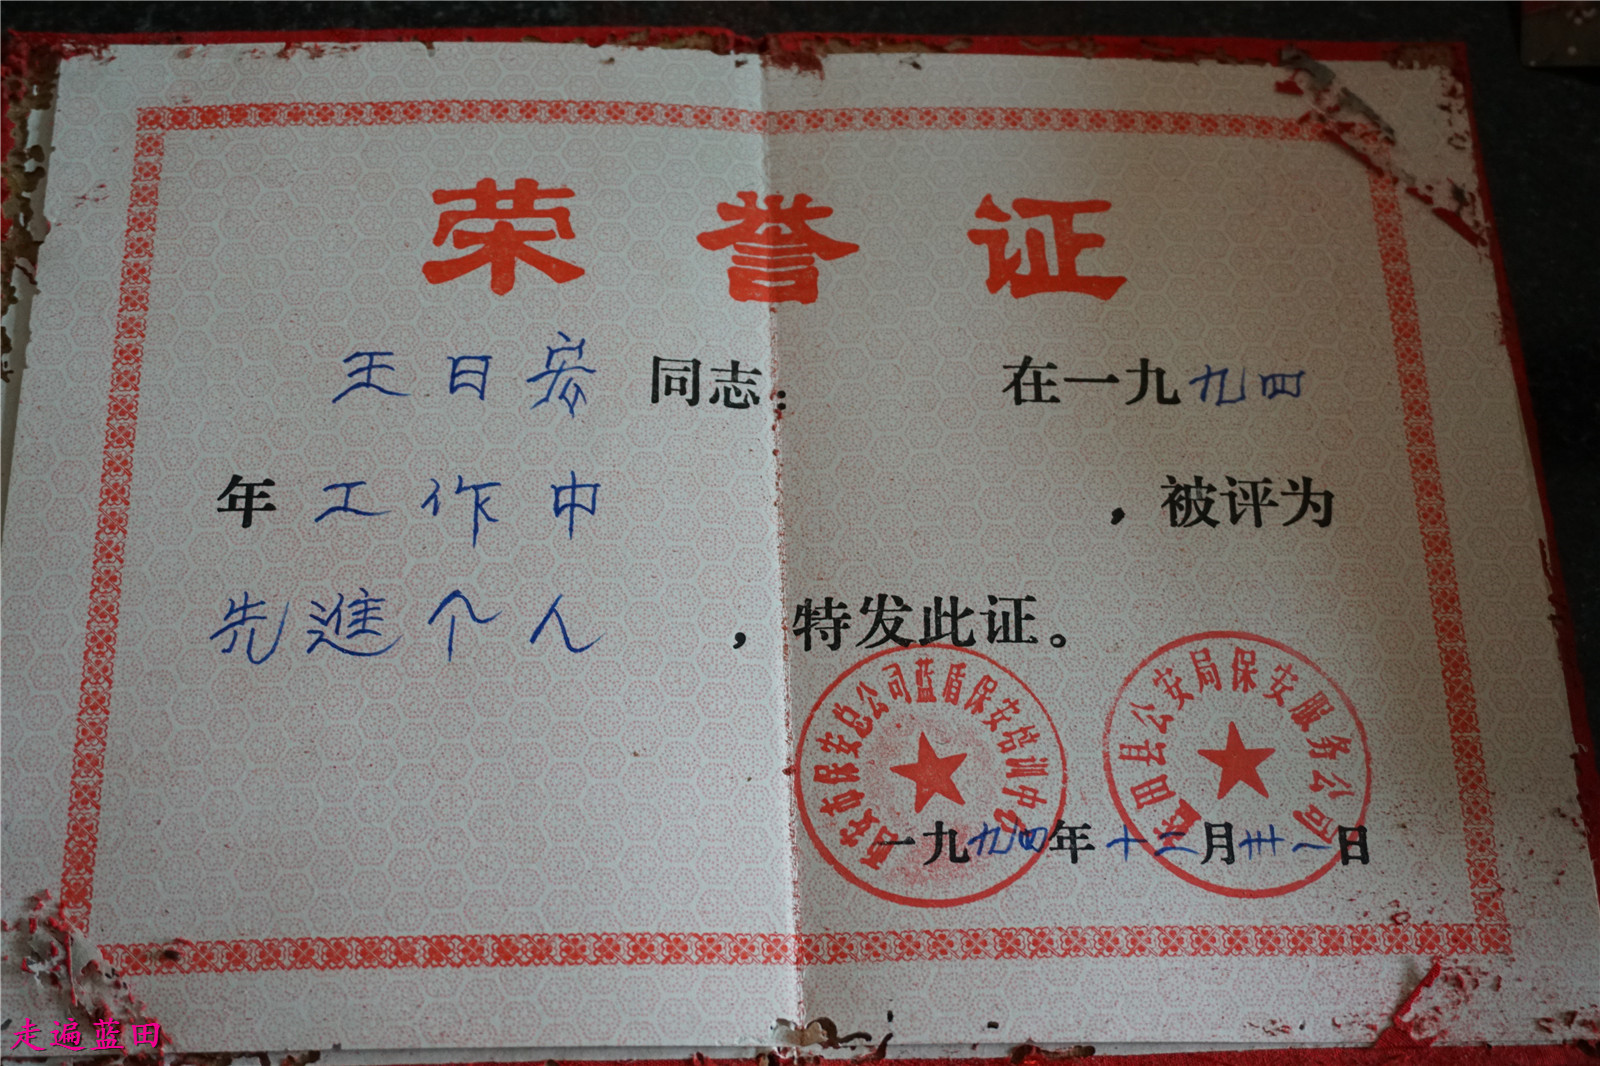 荣誉证
王日宏同志: 在一九九四
年工作中 ,被评为
先進个人 ,特发此证。
西安市保安总公司蓝盾保安培训中心
蓝田县公安局保安服务公司
一九九四年十二月卅一日
走遍蓝田